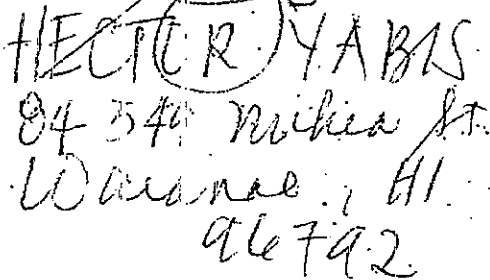 HECTOR YABIS
84 549 Nukea St.
Waianae, HI
96792